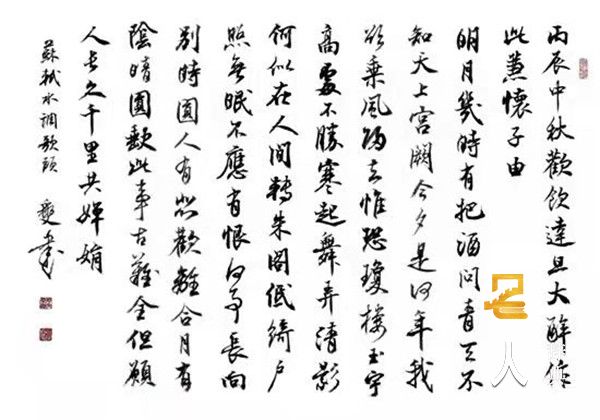 丙辰中秋歡飲達旦大醉作
此兼懷子由
明月幾時有把酒問青天不
知天上宮闕今夕是何年我
欲乘風歸去惟恐瓊樓玉宇
高處不勝寒起舞弄清影
何似在人間轉朱閣低綺户
照無眠不應有恨何事長向
別時圓人有悲歡離合月有
陰晴圓缺此事古難全但願
人長久千里共嬋娟
蘇軾水調歌頭
人